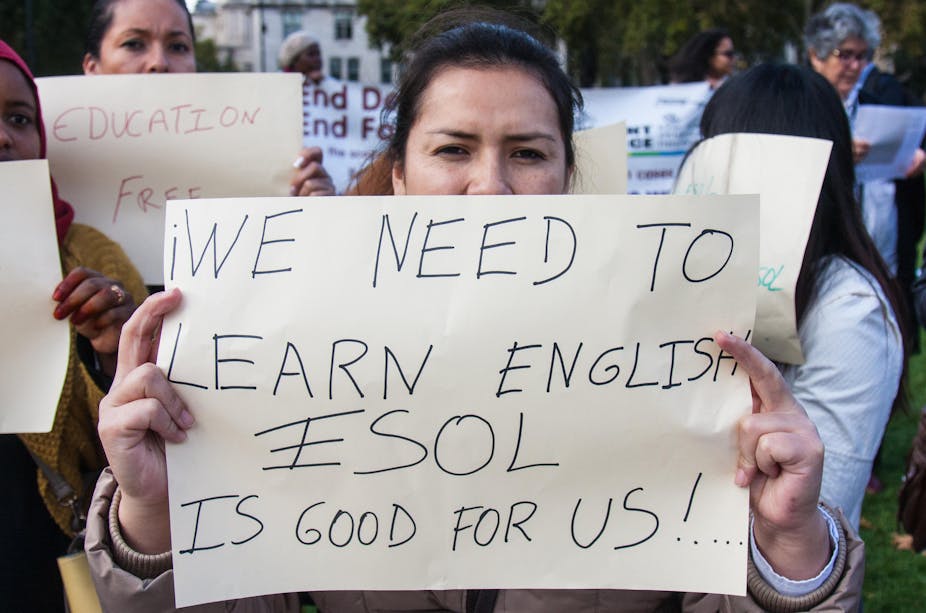 EDUCATION
FREE
End
End
¡WE NEED TO
LEARN ENGLISH
ESOL
IS GOOD FOR US!.....